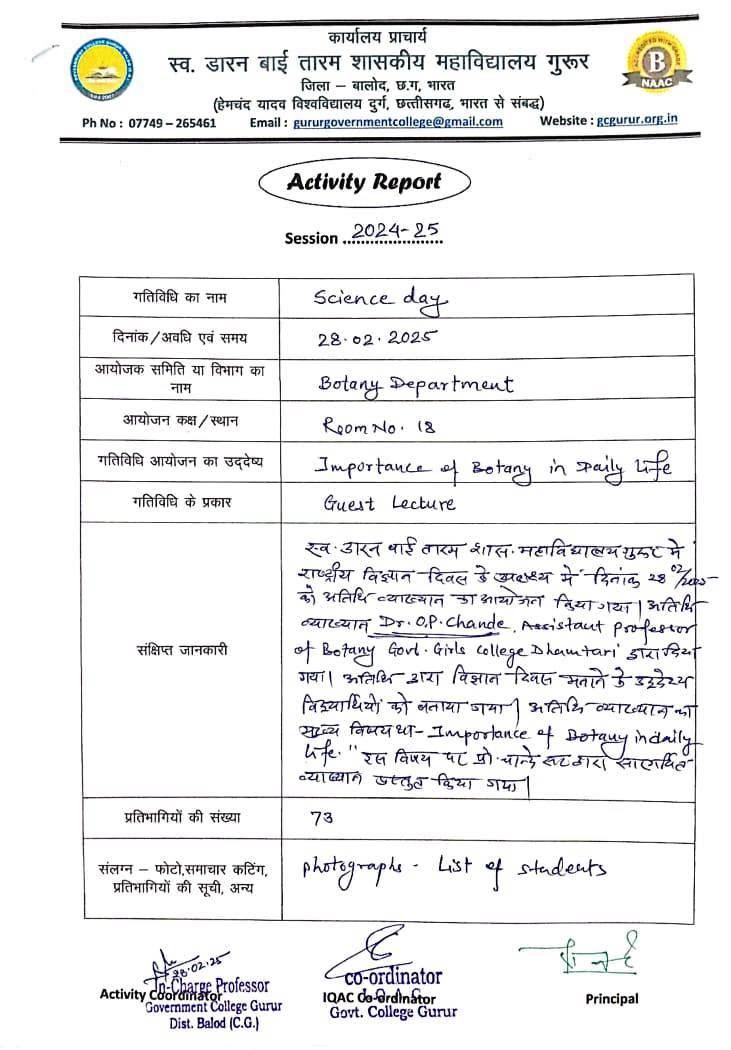 कार्यालय प्राचार्य
स्व. डारन बाई तारम शासकीय महाविद्यालय गुरूर
जिला – बालोद, छ.ग, भारत
(हेमचंद यादव विश्वविद्यालय दुर्ग, छत्तीसगढ, भारत से संबद्ध)
Ph No : 07749 – 265461 Email : gururgovernmentcollege@gmail.com Website : gcgurur.org.in
B
NAAC
Activity Report
Session 2024-25
गतिविधि का नाम Science day
दिनांक/अवधि एवं समय 28.02.2025
आयोजक समिति या विभाग का
नाम Botany Department
आयोजन कक्ष/स्थान Room No. 18
गतिविधि आयोजन का उद्देष्य Importance of Botany in Daily Life
गतिविधि के प्रकार Guest Lecture
संक्षिप्त जानकारी
स्व. डारन बाई तारम शास. महाविद्यालय गुरुर में
राष्ट्रीय विज्ञान दिवस के उपलक्ष्य में दिनांक 28/02/2025
को अतिथि व्याख्यान का आयोजन किया गया। अतिथि
व्याख्यान Dr. O.P. Chande, Assistant professor
of Botany Govt. Girls college Dhamtari द्वारा दिया
गया। अतिथि द्वारा विज्ञान दिवस मनाने के उद्देश्य
विद्यार्थियों को बताया गया। अतिथि व्याख्यान का
मुख्य विषय था - Importance of Botany in daily
Life." इस विषय पर प्रो. चान्दे सर द्वारा सारगर्भित
व्याख्यान प्रस्तुत किया गया।
प्रतिभागियों की संख्या 73
संलग्न – फोटो,समाचार कटिंग,
प्रतिभागियों की सूची, अन्य photographs - List of students
28.02.25
In-Charge Professor
Activity Coordinator
Government College Gurur
Dist. Balod (C.G.)
co-ordinator
IQAC Co-Ordinator
Govt. College Gurur
Principal